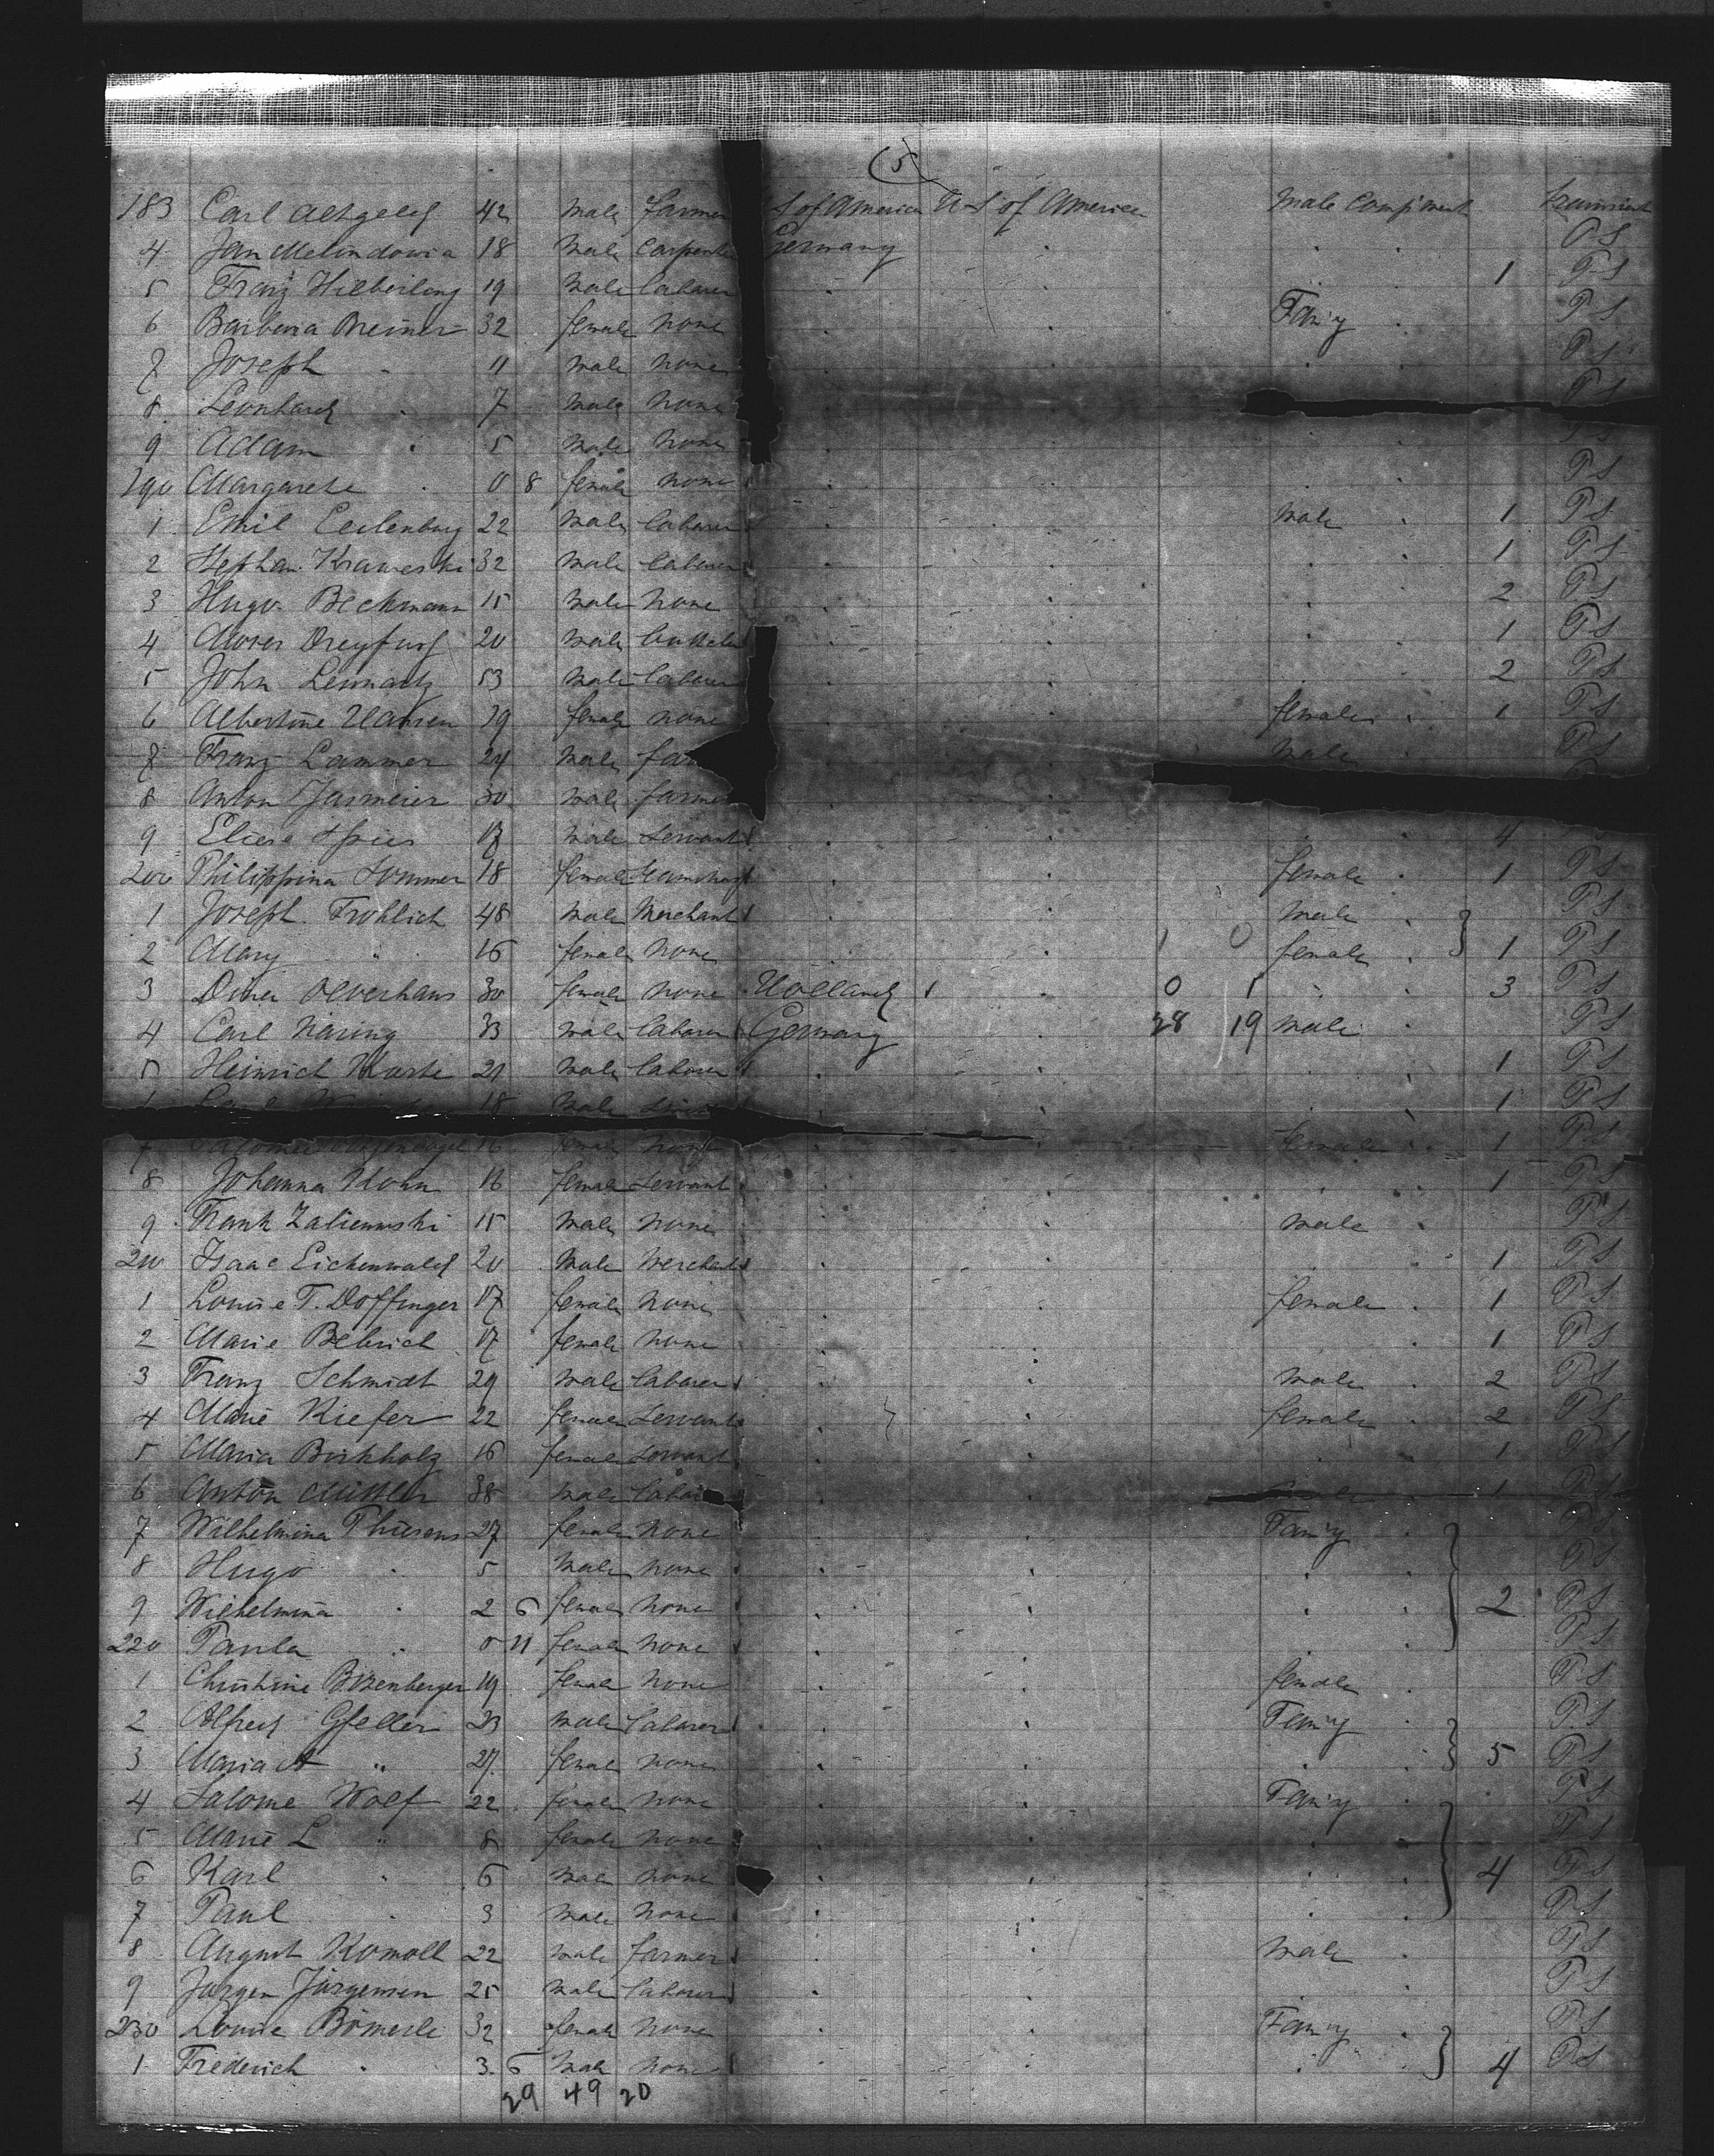 (5)
183 Carl Altgeld 42 male farmer S of America U S of America Male Compiment
4 Jan 18 male Carpenter Germany P S
5 Franz 19 male laborer 1 P S
6 Barbara Breiner 32 female none Fam'y P S
7 Joseph " 11 male none P S
8 Leonhard " 7 male none P S
9 Adam " 5 male none P S
190 Margarete " 0 8 female none P S
1 Emil Eeilenburg 22 male laborer male 1 P S
2 Stephan Kraweski 32 male laborer 1 P S
3 Hugo Beckmann 15 male none 2 P S
4 Moses Dreyfuss 20 male 1 P S
5 John Lennartz 53 male laborer 2 P S
6 Albertine Hansen 19 female none female 1 P S
7 Franz Lammer 24 male far male P S
8 Anton Jasmeier 30 male farmer
9 Eliese Spies 17 male servant 4
200 Philippina Sommer 18 female female 1 P S
1 Joseph Frohlich 48 male Merchant male P S
2 Mary " 16 female none 1 0 female 1 P S
3 Dina Overhaus 30 female none Holland 0 1 3 P S
4 Carl Naring 33 male laborer Germany 28 19 male P S
5 Heinrich Karste 21 male laborer 1 P S
18 male 1 P S
7 16 female none female 1 P S
8 Johanna Kohn 16 female servant 1 P S
9 Frank Zaliewski 15 male none male P S
210 Isaac Eichenwald 20 male Merchant 1 P S
1 Louise T. Doffinger 17 female none female 1 P S
2 Marie Belrich 17 female none 1 P S
3 Franz Schmidt 29 male laborer male 2 P S
4 Marie Kiefer 22 female servant female 2 P S
5 Maria Birkholz 16 female servant 1 P S
6 Anton Müttler 38 male laborer 1 P S
7 Wilhelmina Thürens 27 female none Fam'y P S
8 Hugo " 5 male none P S
9 Wilhelmina " 2 6 female none 2 P S
220 Paula " 0 11 female none P S
1 Christine Bozenberger 19 female none female P S
2 Alfred Gfeller 23 male laborer Fam'y P S
3 Maria A " 27 female none 5 P S
4 Salome Wolf 22 female none Fam'y P S
5 Marie L " 8 female none P S
6 Karl " 6 male none 4 P S
7 Paul " 3 male none P S
8 August Komoll 22 male farmer male P S
9 Jürgen Jürgensen 25 male laborer P S
230 Louise Bömerle 32 female none Fam'y P S
1 Frederich " 3 6 male none 4 P S
29 49 20